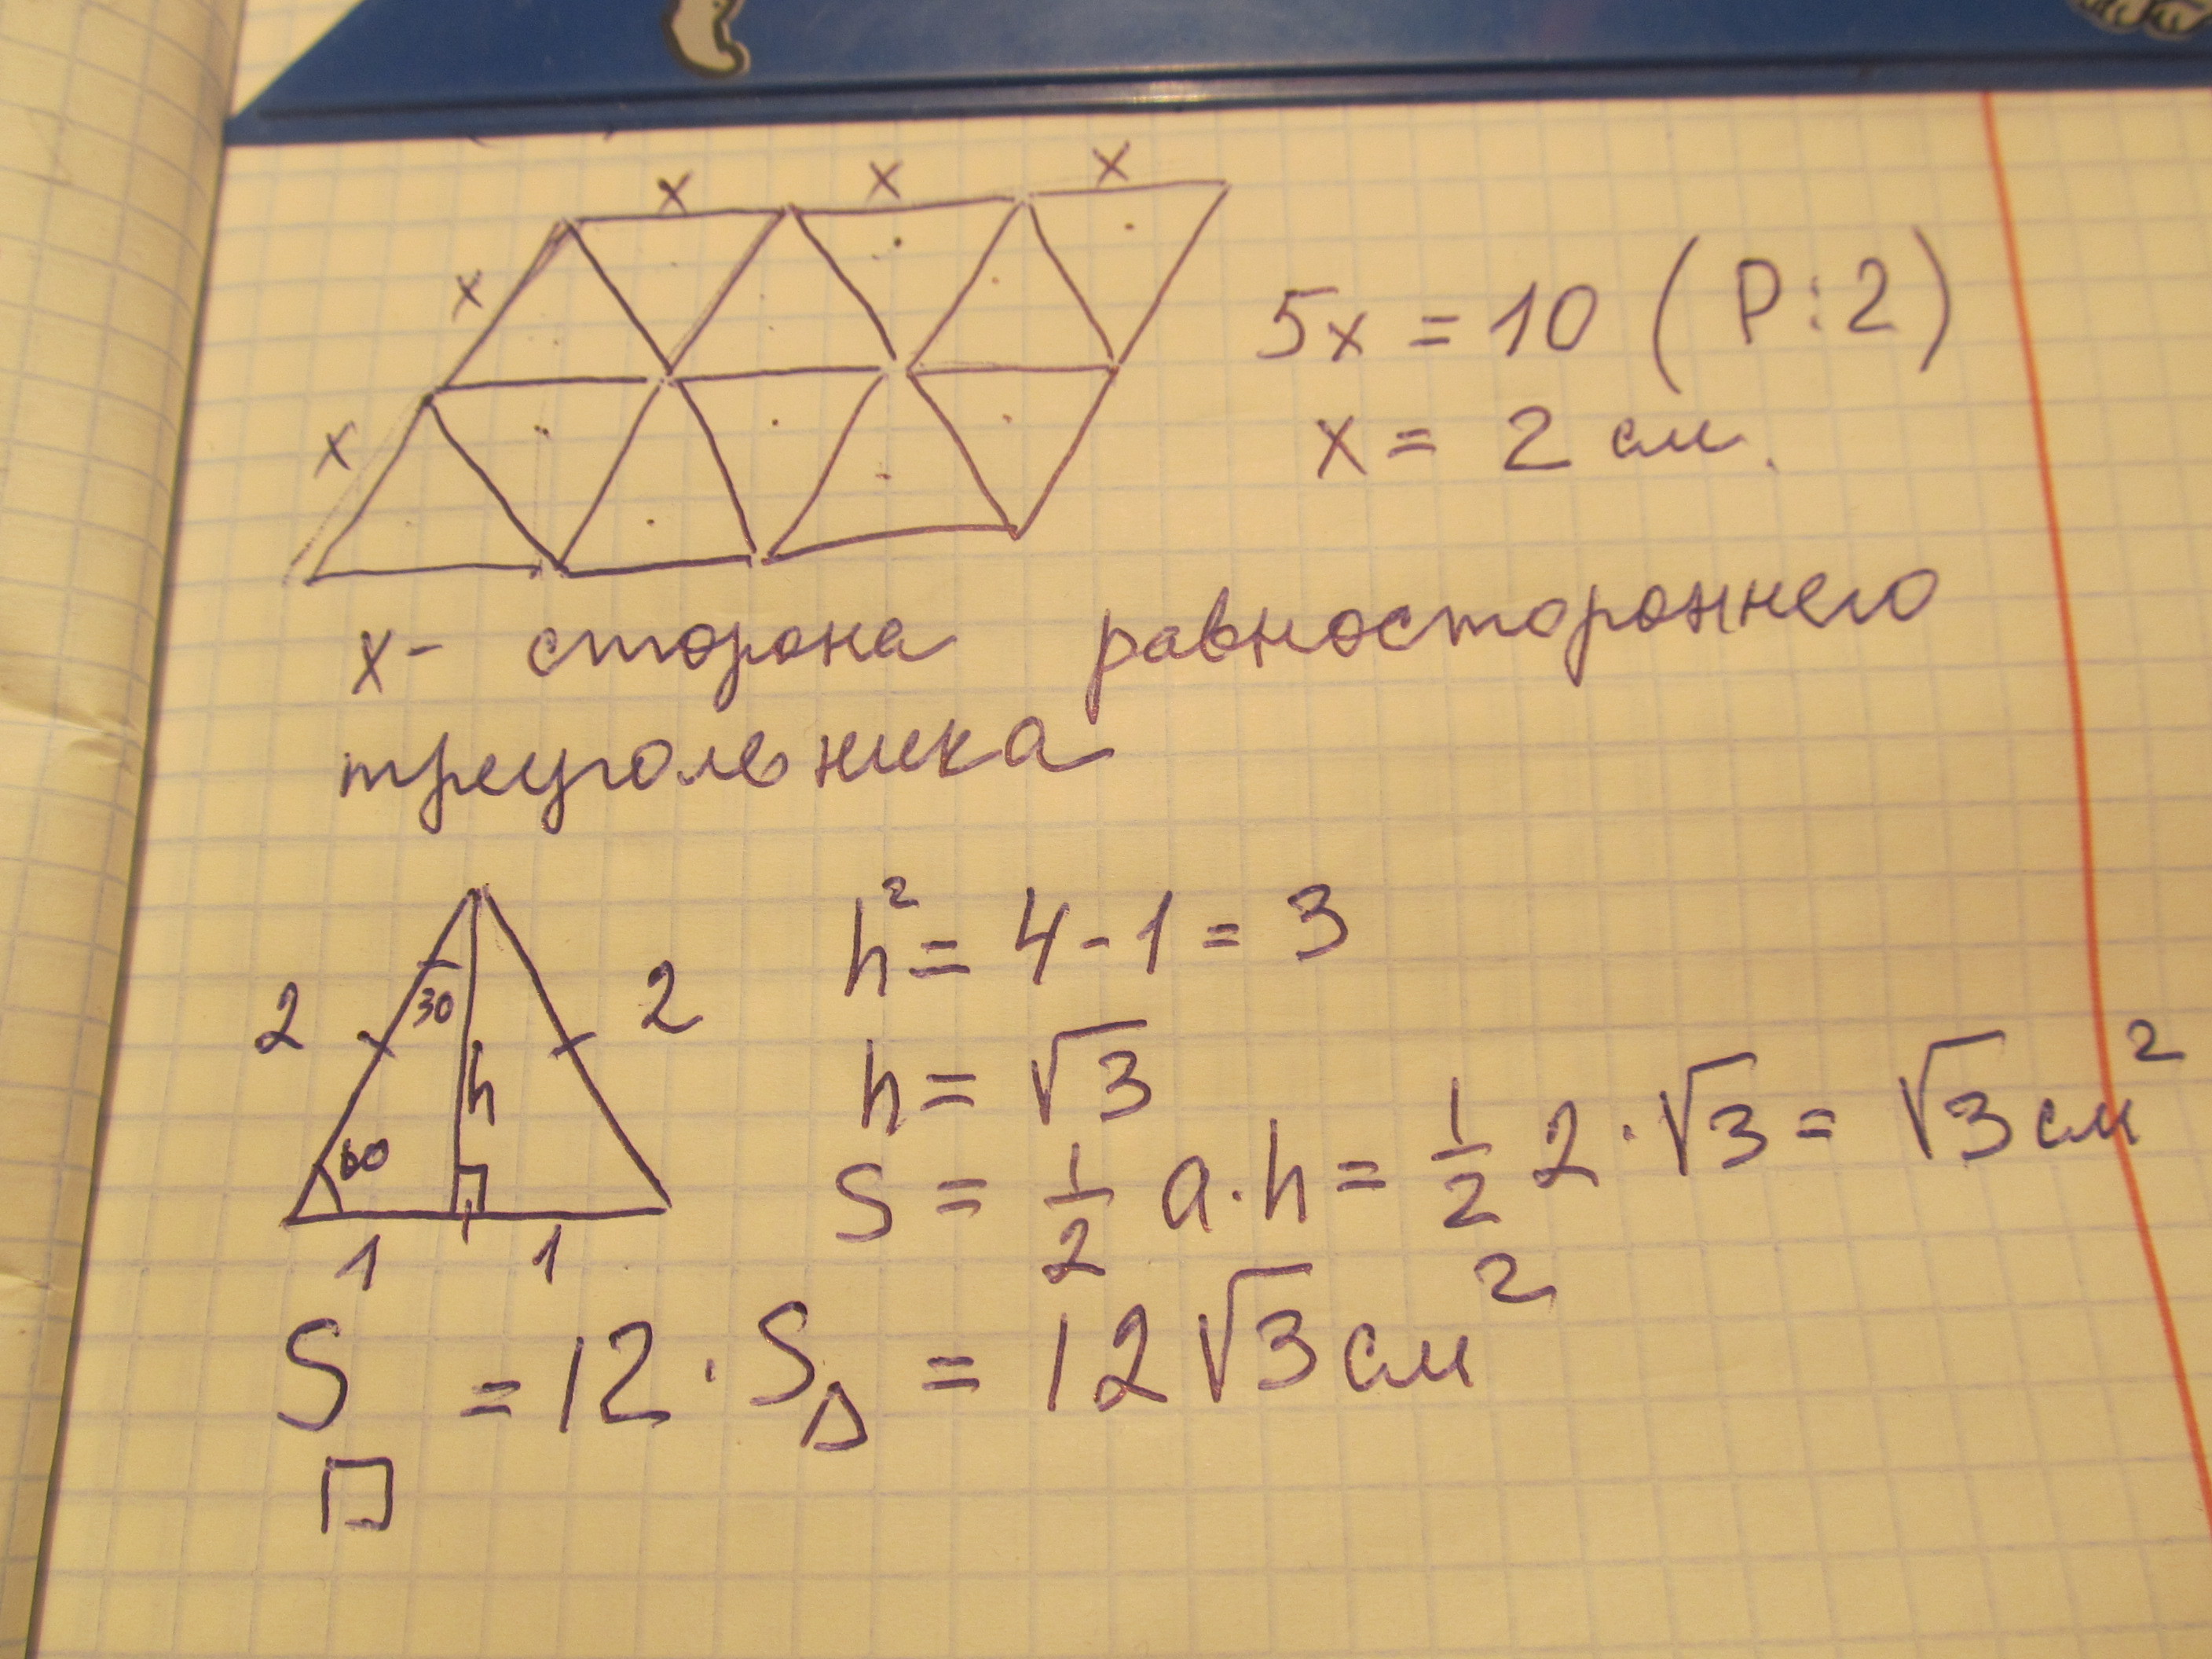 x x x
x
x
5x = 10 (P:2)
x = 2 см.
x - сторона равностороннего
треугольника
2 30 h 2
60
1 1
h² = 4 - 1 = 3
h = √3
S = 1/2 a · h = 1/2 2 · √3 = √3 см²
S□ = 12 · S△ = 12√3 см²